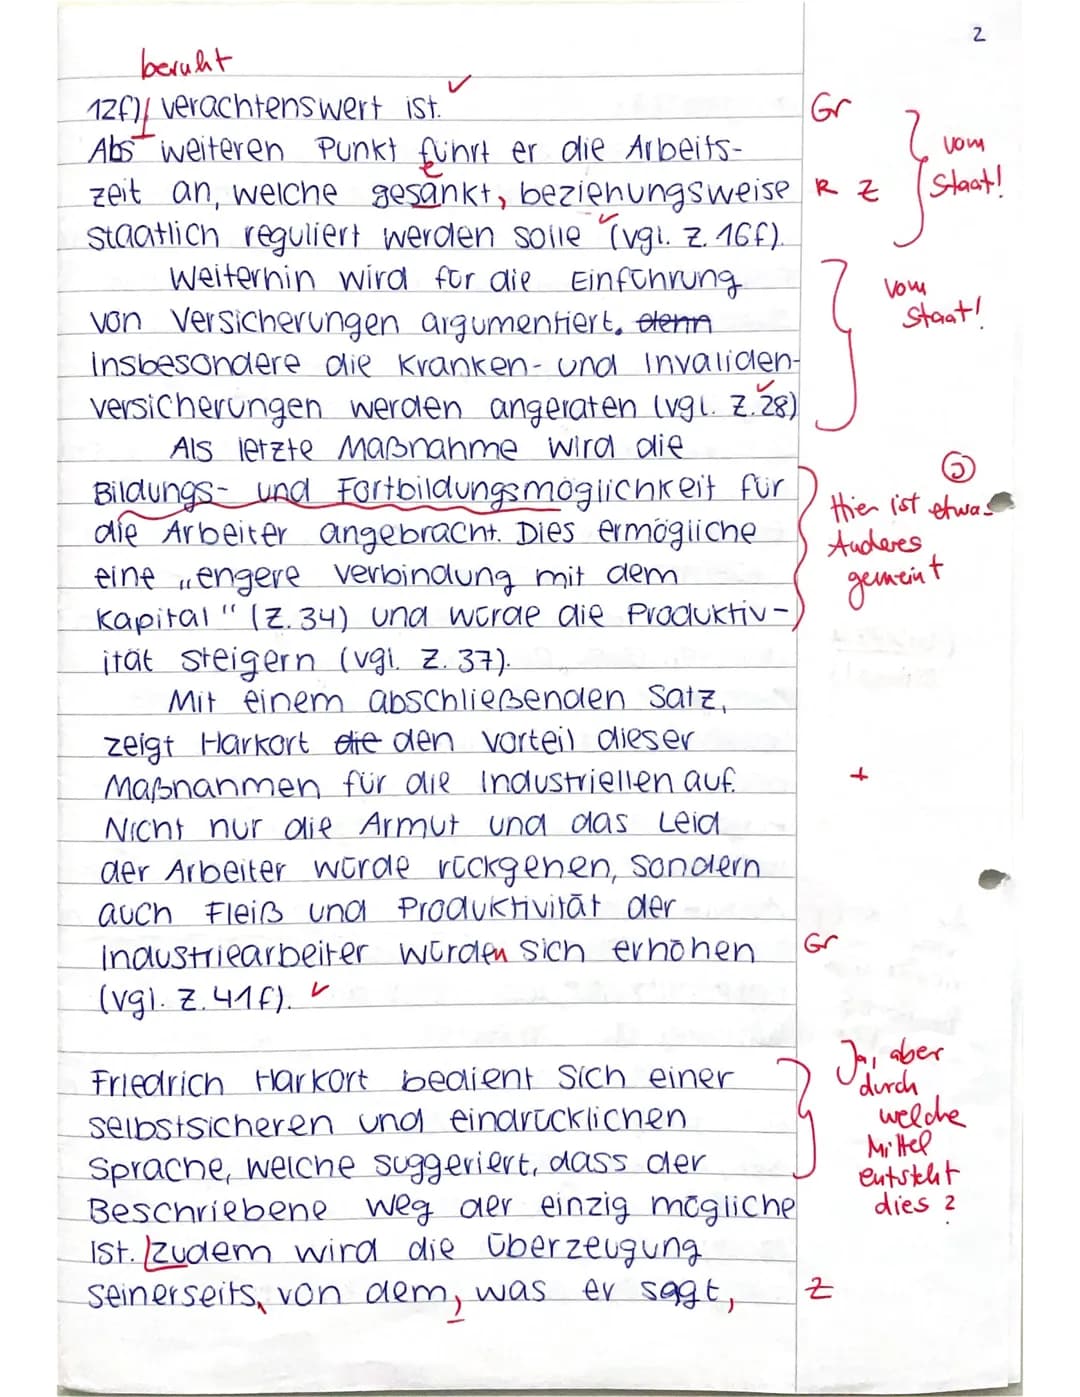 2
beruht
12f) verachtenswert ist.
Gr
Als weiteren Punkt führt er die Arbeits-
vom
zeit an, welche gesänkt, beziehungsweise
R Z
Staat!
staatlich reguliert werden solle (vgl. Z. 16f).
Weiterhin wird für die Einführung
vom
von Versicherungen argumentiert. denn
Staat!
Insbesondere die Kranken- und Invaliden-
versicherungen werden angeraten (vgl. Z. 28)
Als letzte Maßnahme wird die
Bildungs- und Fortbildungsmöglichkeit für
Hier ist etwas
die Arbeiter angebracht. Dies ermögliche
Anderes
eine „engere Verbindung mit dem
gemeint
Kapital" (Z. 34) und würde die Produktiv-
ität steigern (vgl. Z. 37).
Mit einem abschließenden Satz,
zeigt Harkort die den Vorteil dieser
Maßnahmen für die Industriellen auf.
+
Nicht nur die Armut und das Leid
der Arbeiter würde rückgehen, sondern
auch Fleiß und Produktivität der
Industriearbeiter würden sich erhöhen
Gr
(vgl. Z. 41f).
Ja, aber
Friedrich Harkort bedient sich einer
durch
selbstsicheren und eindrücklichen
welche
Mittel
Sprache, welche suggeriert, dass der
entsteht
Beschriebene Weg der einzig mögliche
dies?
ist. Zudem wird die Überzeugung
seinerseits, von dem, was er sagt,
Z